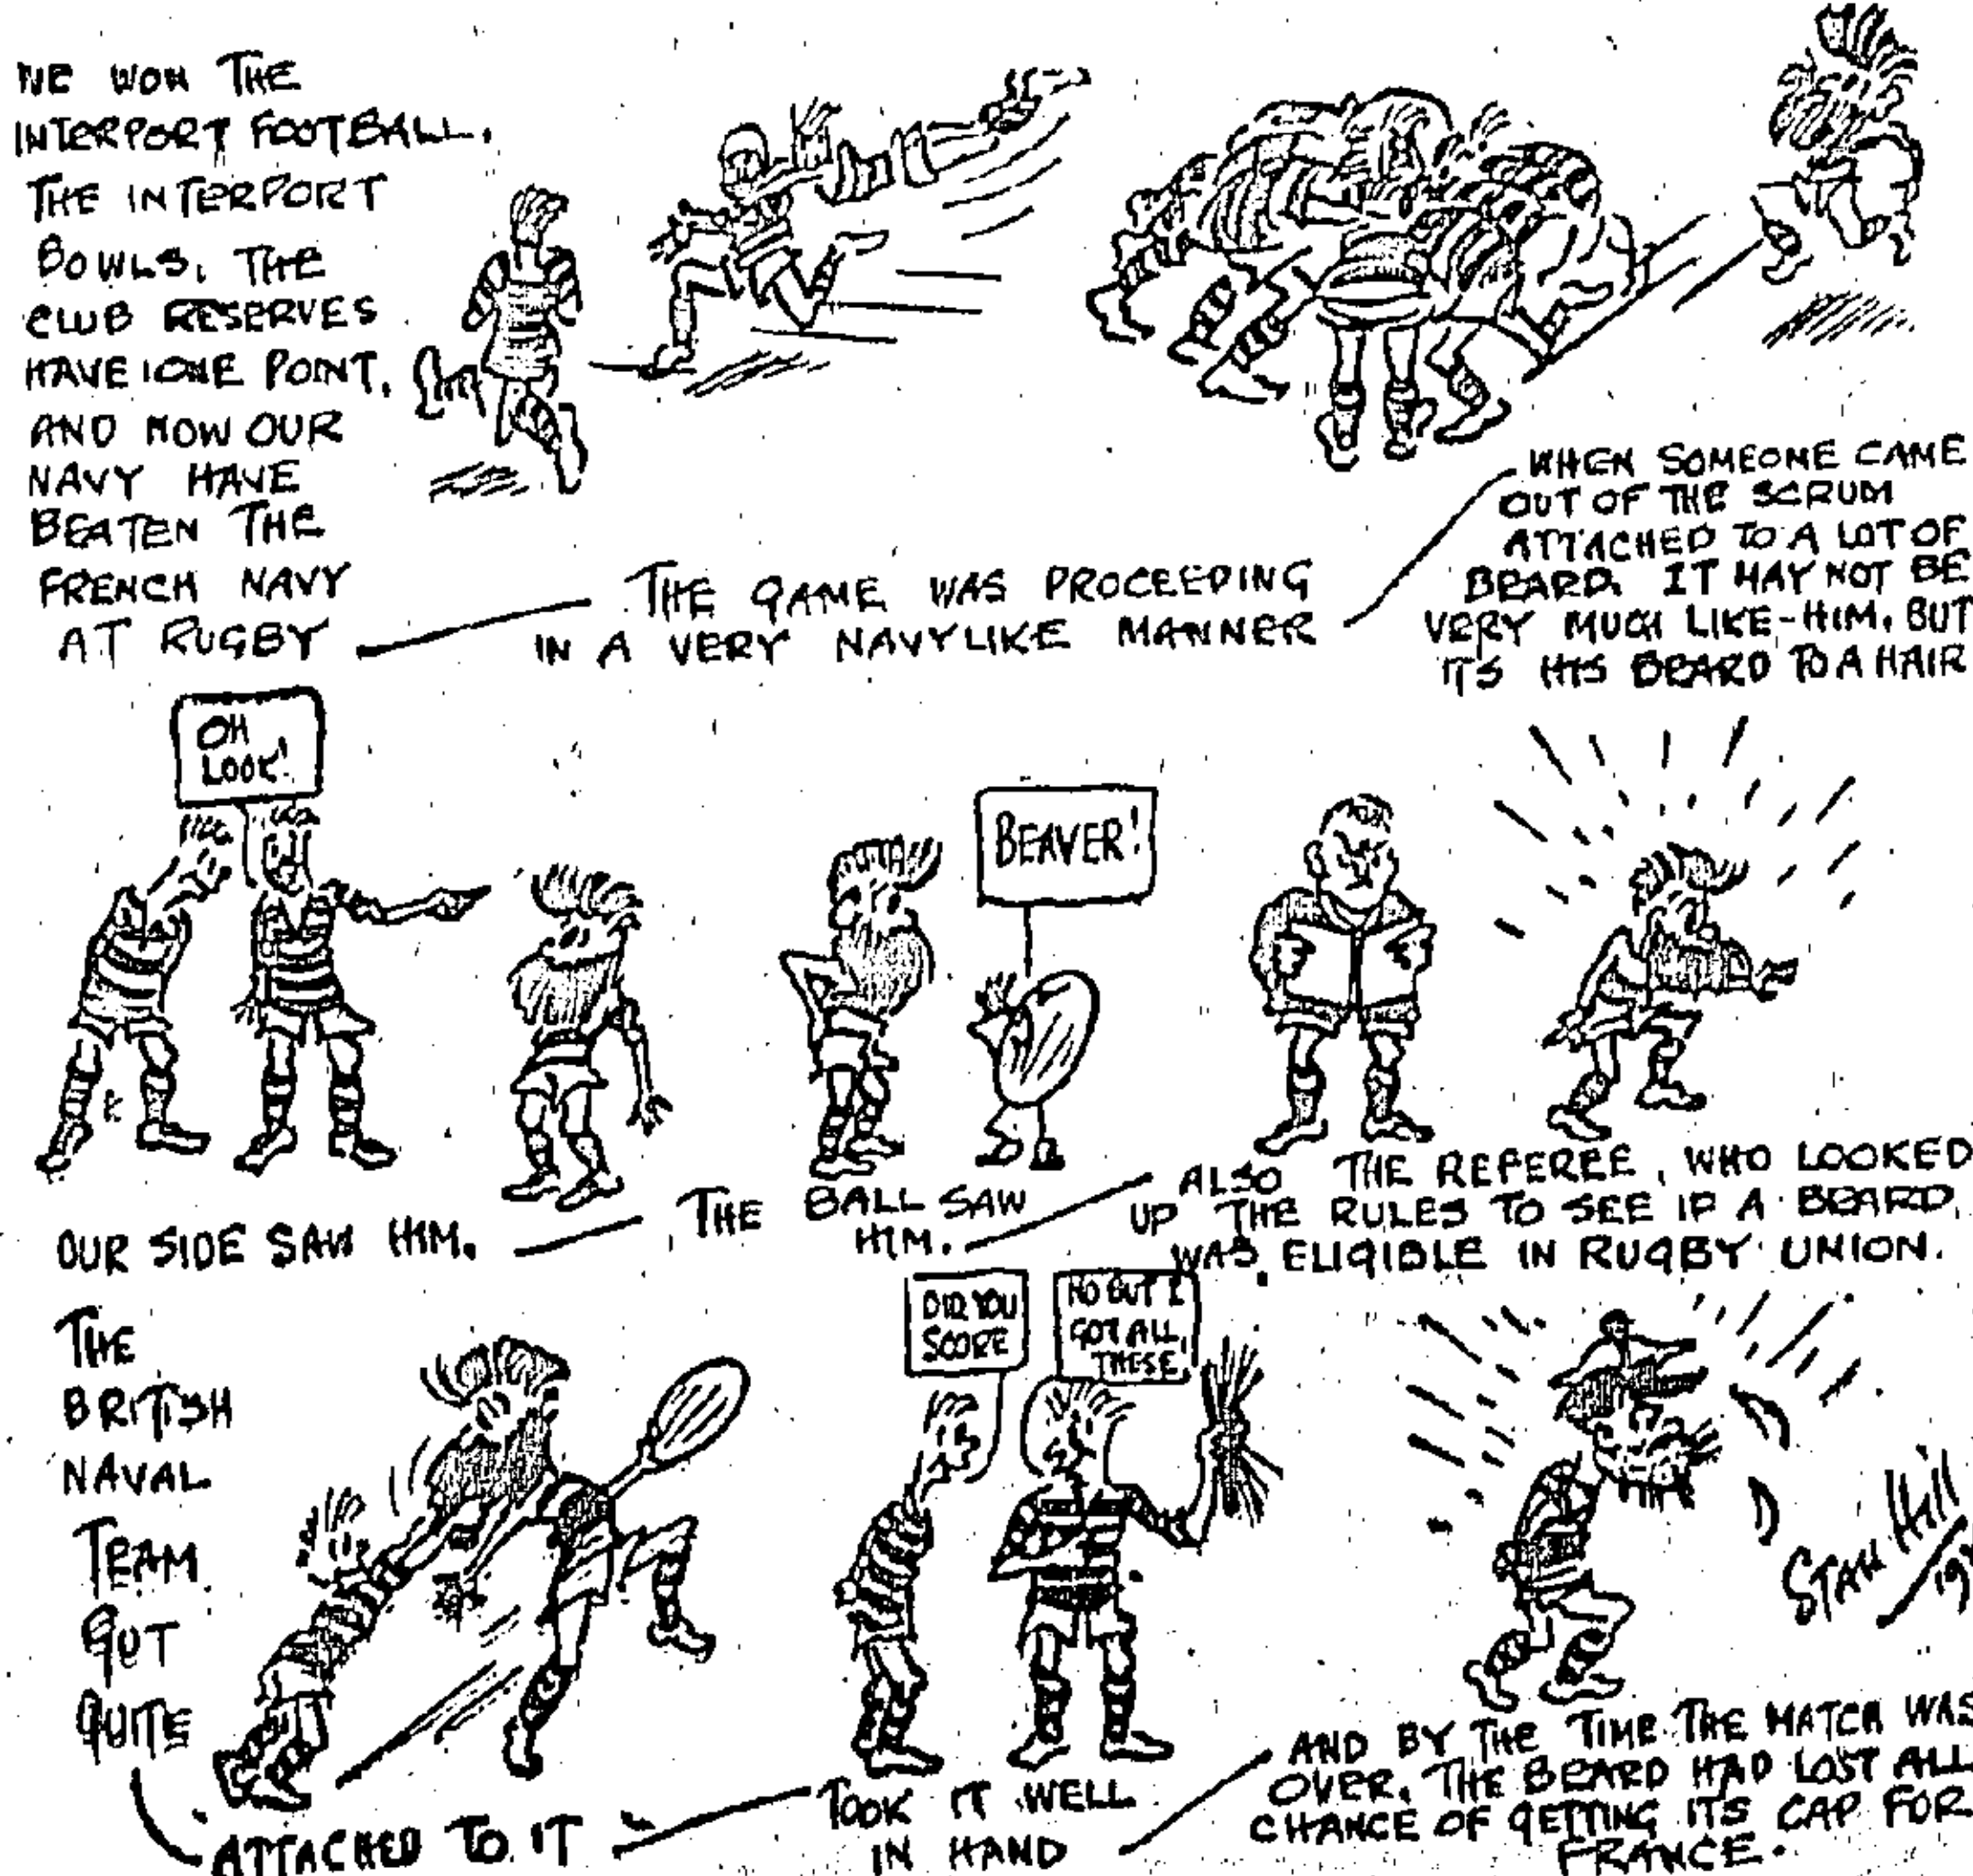 WE WON THE
INTERPORT FOOTBALL.
THE INTERPORT
BOWLS. THE
CLUB RESERVES
HAVE ONE POINT.
AND NOW OUR
NAVY HAVE
BEATEN THE
FRENCH NAVY
AT RUGBY
THE GAME WAS PROCEEDING
IN A VERY NAVYLIKE MANNER
WHEN SOMEONE CAME
OUT OF THE SCRUM
ATTACHED TO A LOT OF
BEARD. IT MAY NOT BE
VERY MUCH LIKE-HIM. BUT
IT'S HIS BEARD TO A HAIR
OH
LOOK!
BEAVER!
OUR SIDE SAW HIM.
THE BALL SAW
HIM.
ALSO THE REFEREE, WHO LOOKED
UP THE RULES TO SEE IF A BEARD
WAS ELIGIBLE IN RUGBY UNION.
THE
BRITISH
NAVAL
TEAM
GOT
QUITE
ATTACHED TO IT
DID YOU
SCORE
NO BUT I
GOT ALL
THESE
TOOK IT WELL
IN HAND
STAN HILL
AND BY THE TIME THE MATCH WAS
OVER, THE BEARD HAD LOST ALL
CHANCE OF GETTING ITS CAP FOR
FRANCE.